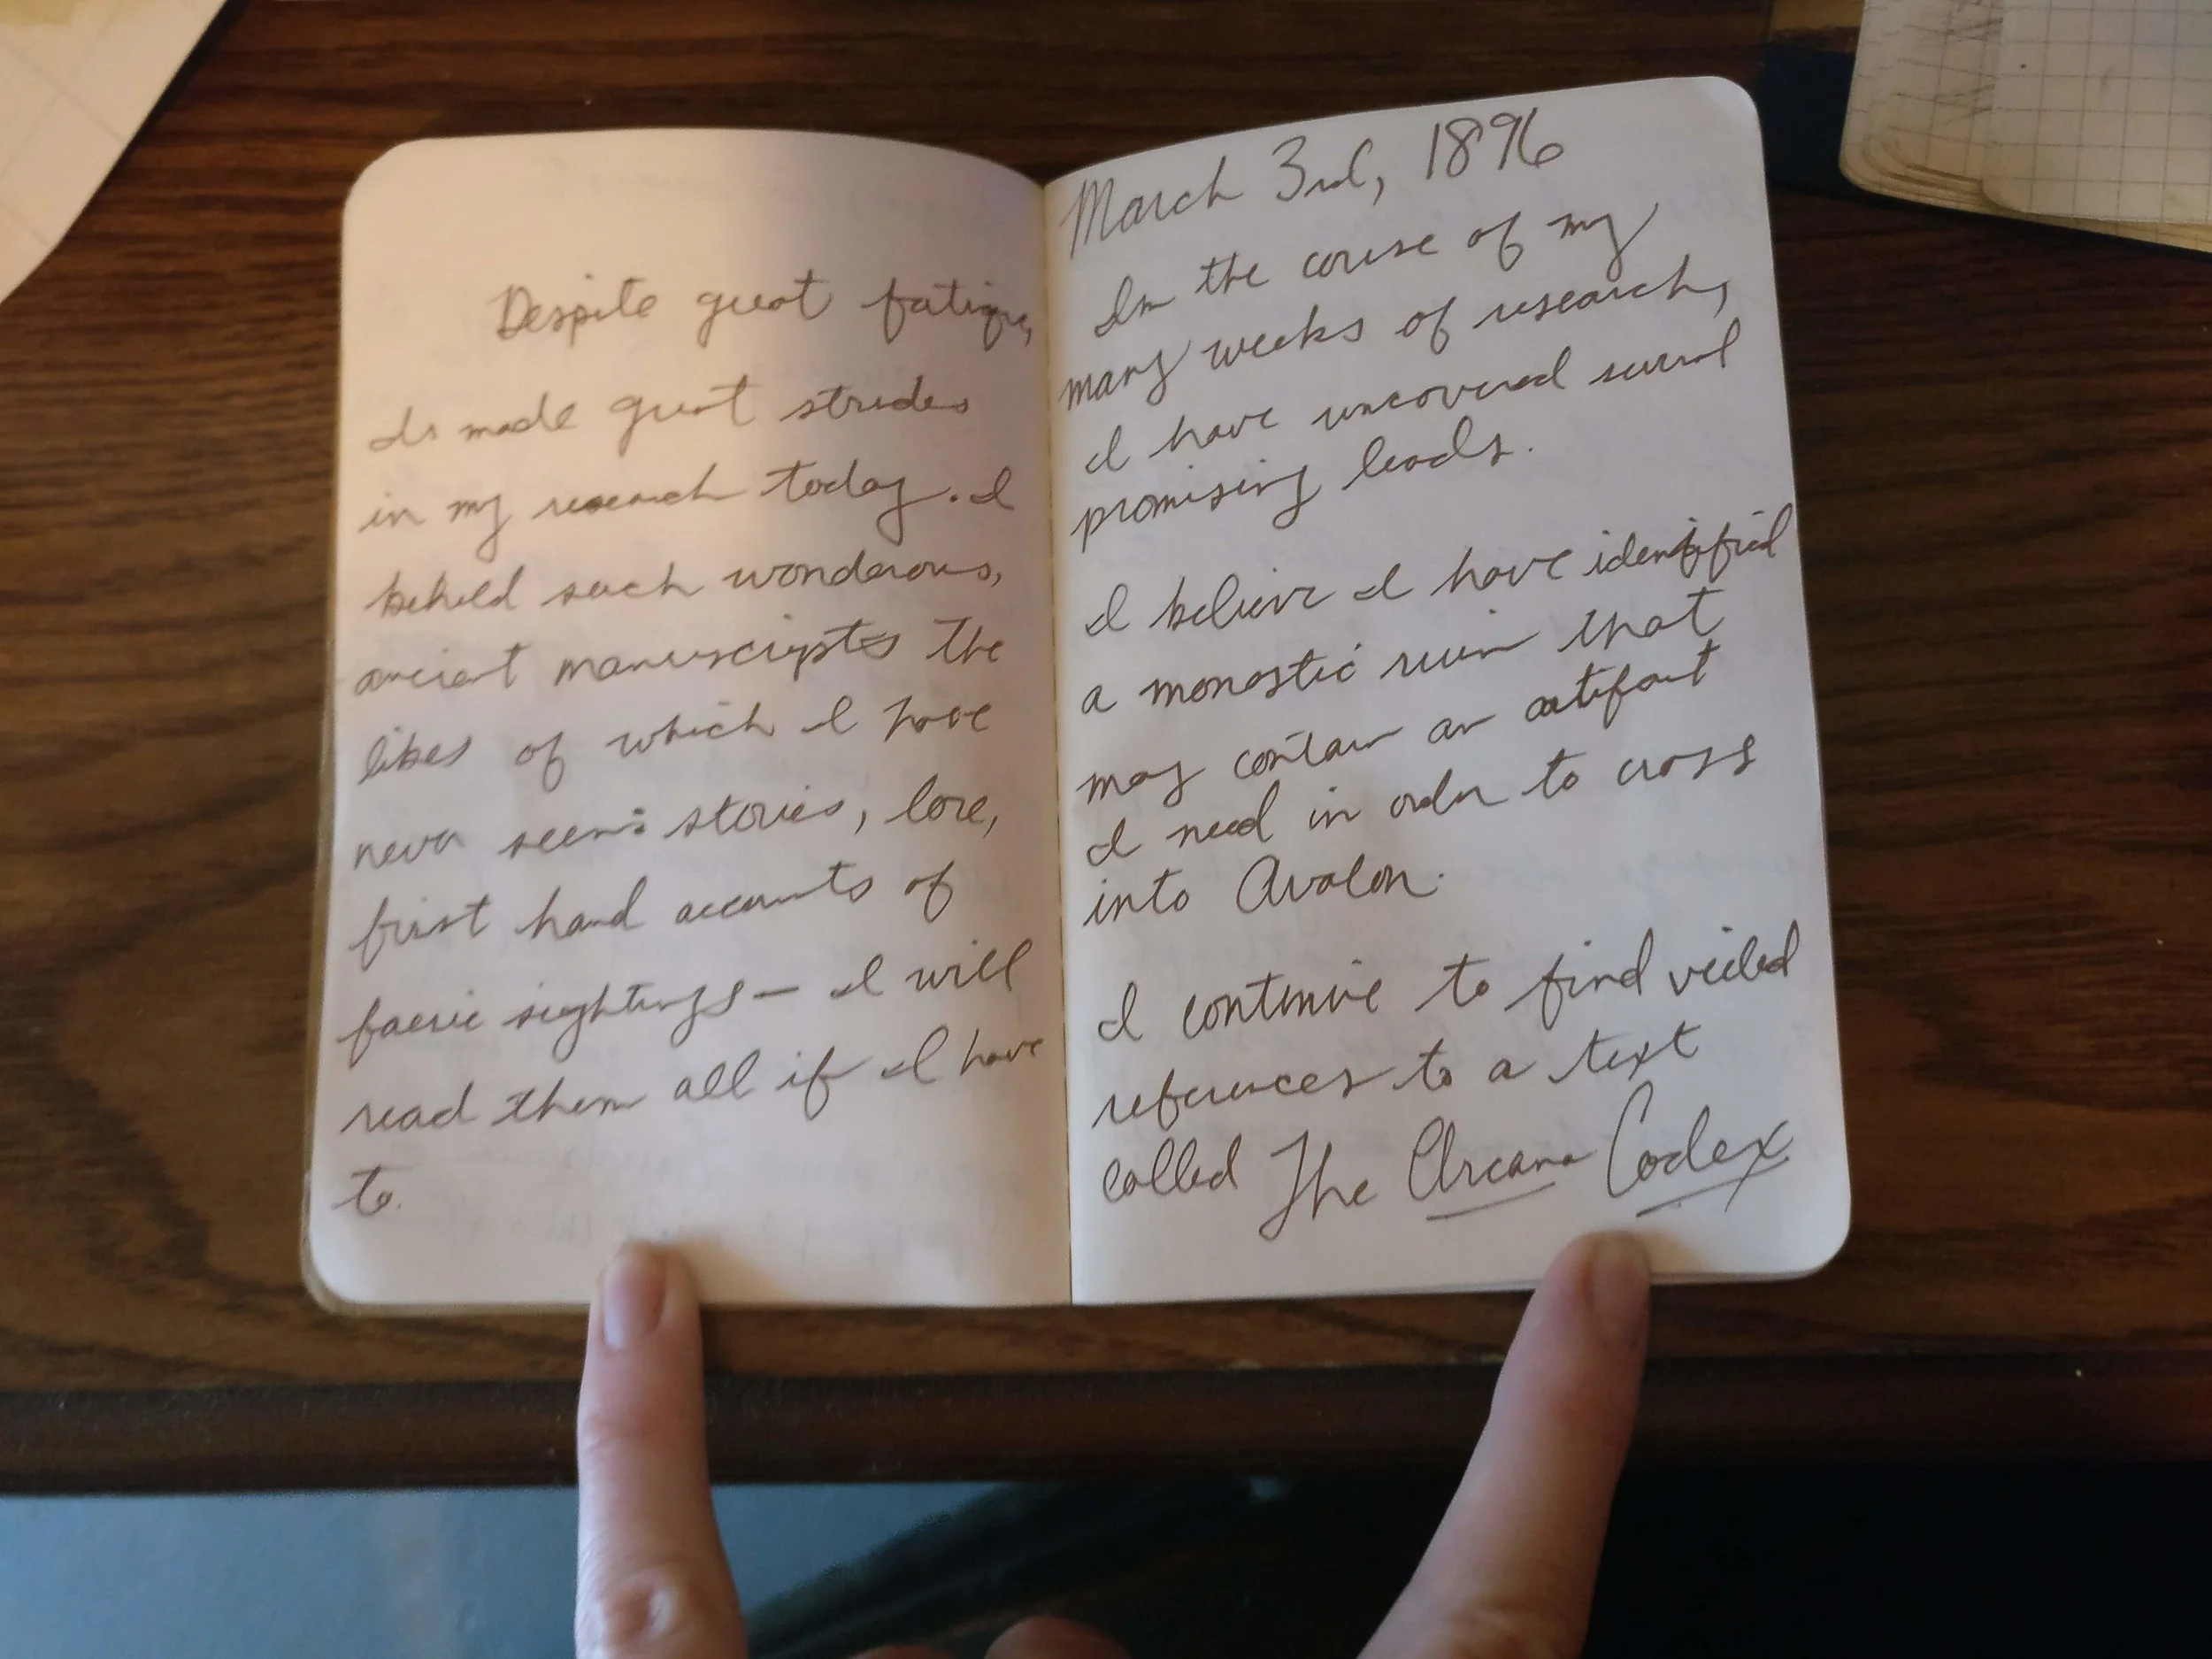 Despite great fatigue,
I made great strides
in my research today. I
beheld such wonderous,
ancient manuscripts the
likes of which I have
never seen: stories, lore,
first hand accounts of
faerie sightings — I will
read them all if I have
to.
March 3rd, 1896
In the course of my
many weeks of research,
I have uncovered several
promising leads.
I believe I have identified
a monastic ruin that
may contain an artifact
I need in order to cross
into Avalon.
I continue to find veiled
references to a text
called The Arcana Codex